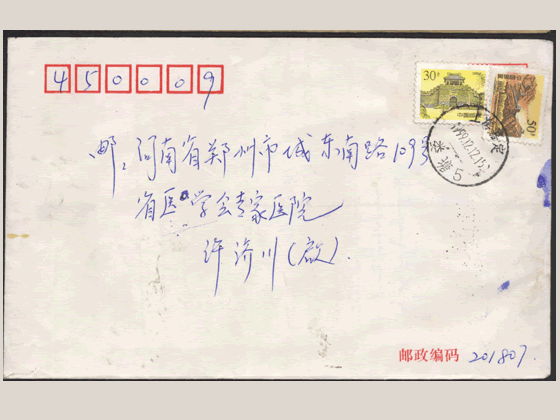 450009
30分
50分
邮:河南省郑州市城东南路109号
省医学会专家医院
许济川(启).
邮政编码 201807.